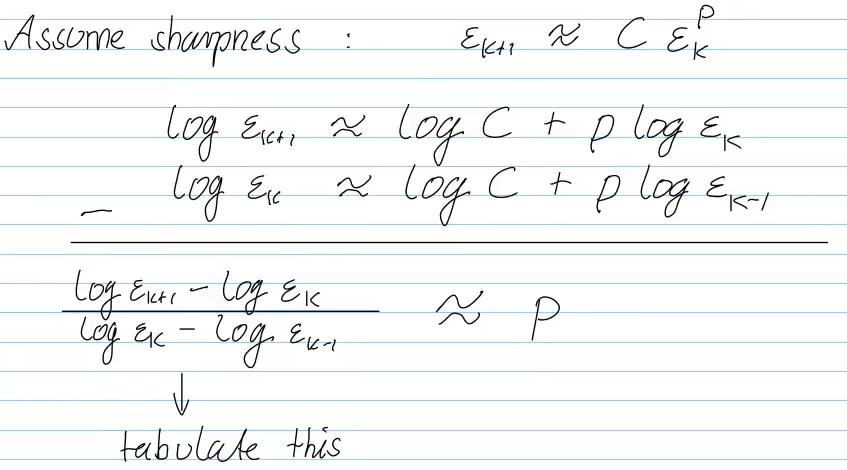 Assume sharpness : ε_{k+1} ≈ C ε_k^p
log ε_{k+1} ≈ log C + p log ε_k
− log ε_k ≈ log C + p log ε_{k-1}
log ε_{k+1} − log ε_k
log ε_k − log ε_{k-1}
≈ p
↓
tabulate this